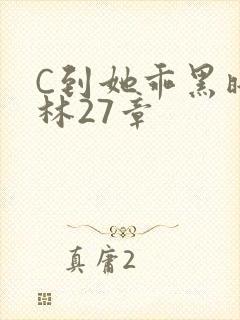 C到她乖黑暗
林27章
真庸2